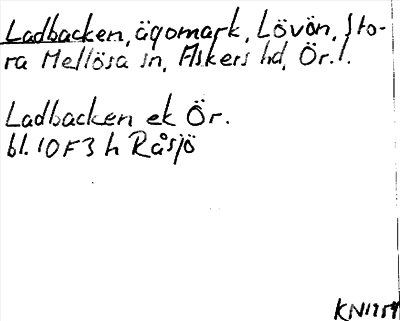 Ladbacken, ägomark, Lövön, Sto-
ra Mellösa sn, Askers hd, Ör. l.
Ladbacken ek Ör.
bl. 10F3h Råsjö